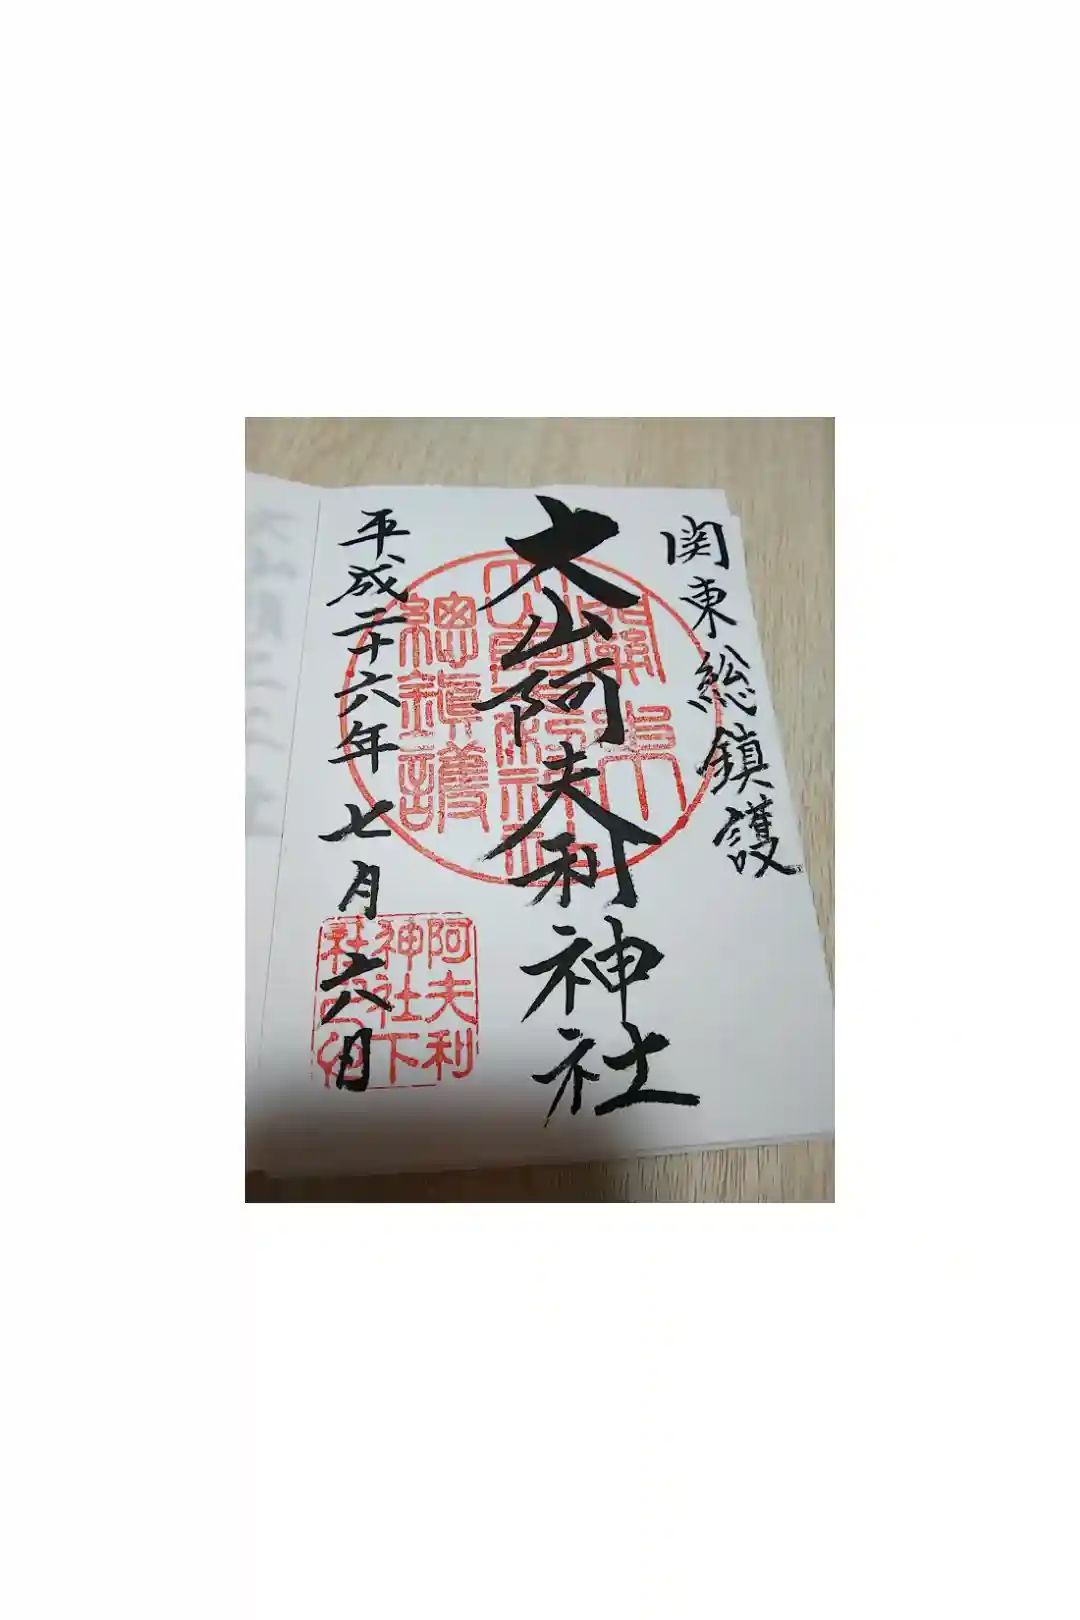 関東総鎮護
大山阿夫利神社
平成二十六年七月六日
關東
大山阿夫利神社
總鎮護
阿夫利
神社下
社